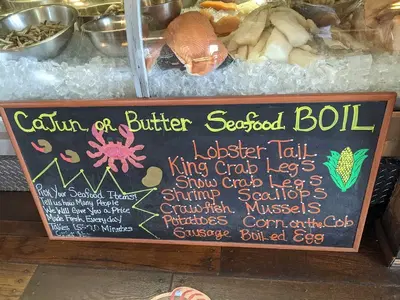 Cajun or Butter Seafood BOIL
Lobster Tail
King Crab Legs
Snow crab Legs
Shrimp Scallops
Crawfish Mussels
Potatoes Corn on the Cob
Sausage Boiled Egg
Pick Your Seafood Items
Tell us How Many People
We Will Give You a Price
Made Fresh Everyday
Takes 15-20 Minutes